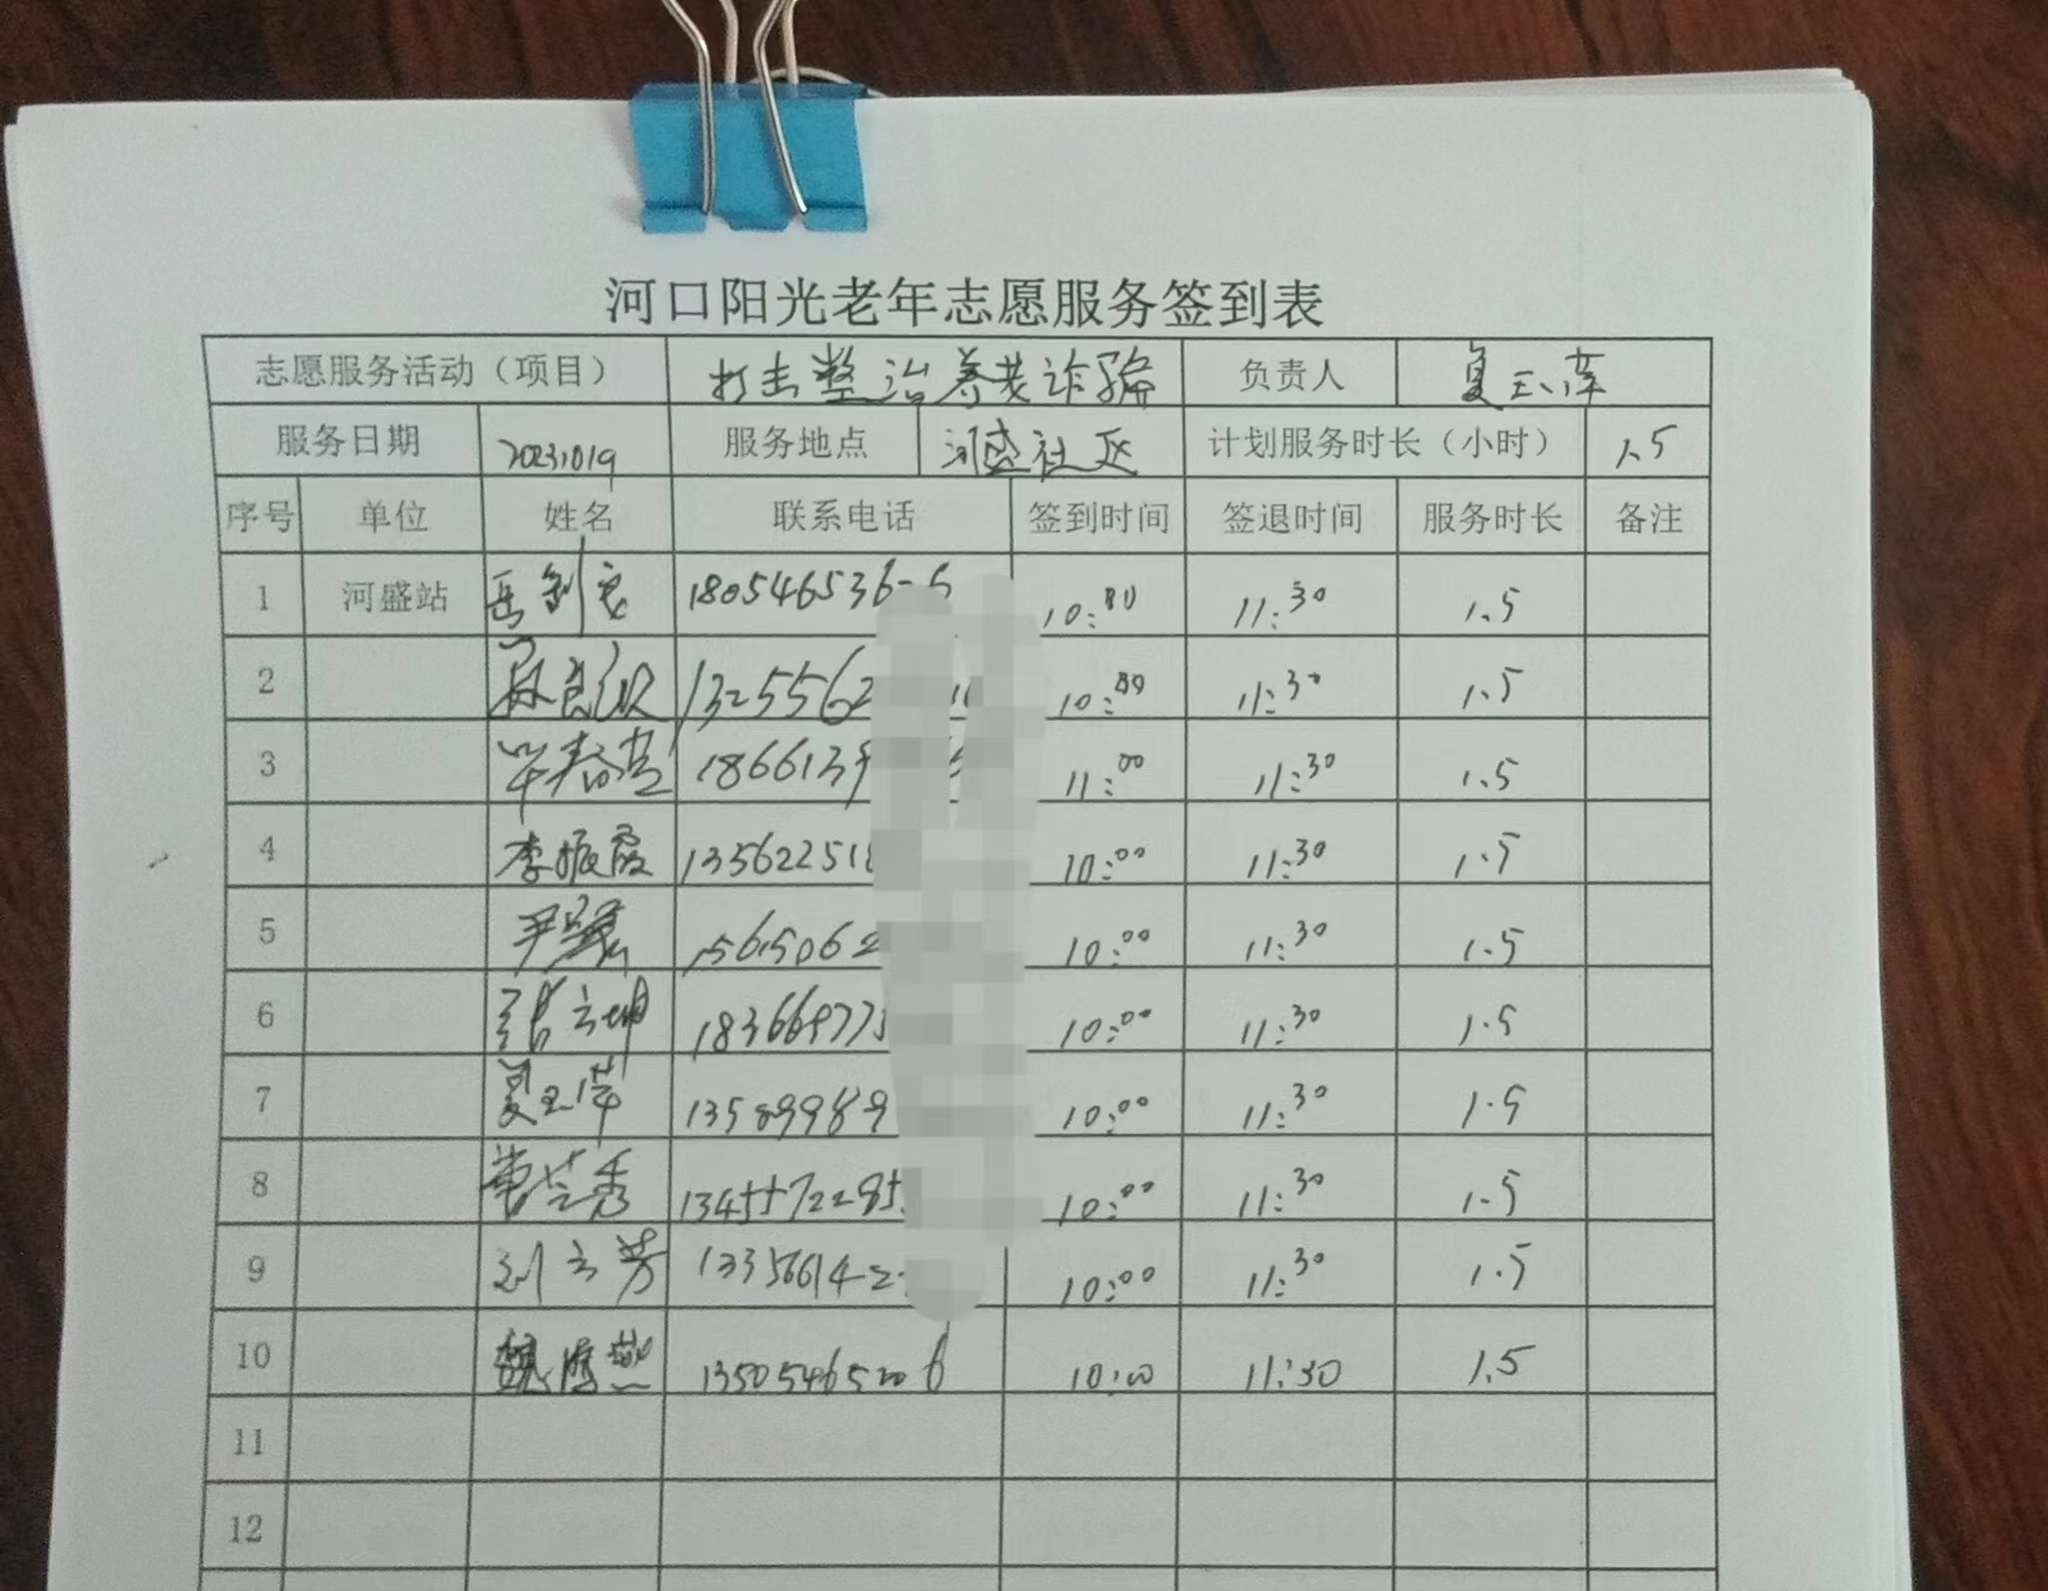 河口阳光老年志愿服务签到表
志愿服务活动（项目） 打击整治养老诈骗 负责人
服务日期 20231019 服务地点 河盛社区 计划服务时长（小时） 1.5
序号 单位 姓名 联系电话 签到时间 签退时间 服务时长 备注
1 河盛站 180546536 10:00 11:30 1.5
2 1325562 10:00 11:30 1.5
3 1866139 11:00 11:30 1.5
4 李振霞 135622518 10:00 11:30 1.5
5 15615062 10:00 11:30 1.5
6 10:00 11:30 1.5
7 135899989 10:00 11:30 1.5
8 1345572285 10:00 11:30 1.5
9 刘云芳 133566142 10:00 11:30 1.5
10 10:00 11:30 1.5
11
12